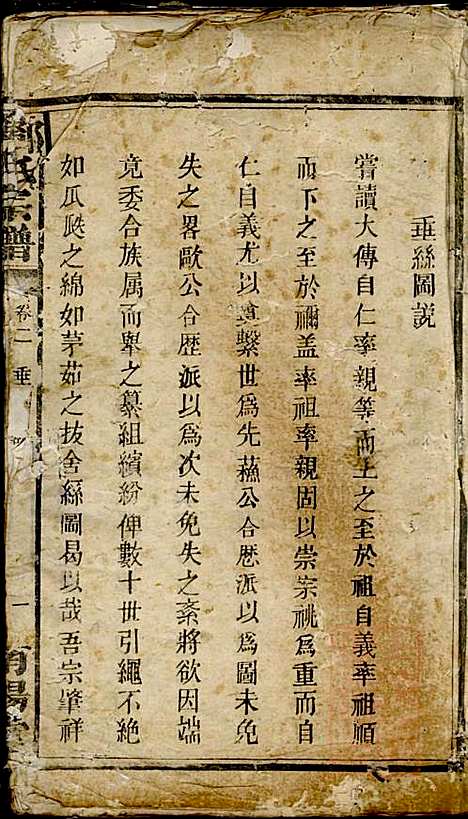 垂絲圖説
嘗讀大傳自仁率親等而上之至於祖自義率祖順
而下之至於禰盖率祖率親固以崇宗祧爲重而自
仁自義尤以尊繫世爲先蘓公合歴派以爲圖未免
失之畧歐公合歴派以爲次未免失之紊將欲因端
竟委合族属而舉之綦組繽紛俾數十世引繩不絶
如瓜瓞之綿如茅茹之抜舍絲圖曷以哉吾宗肇祥
氏宗譜
卷二
垂
一
陽堂